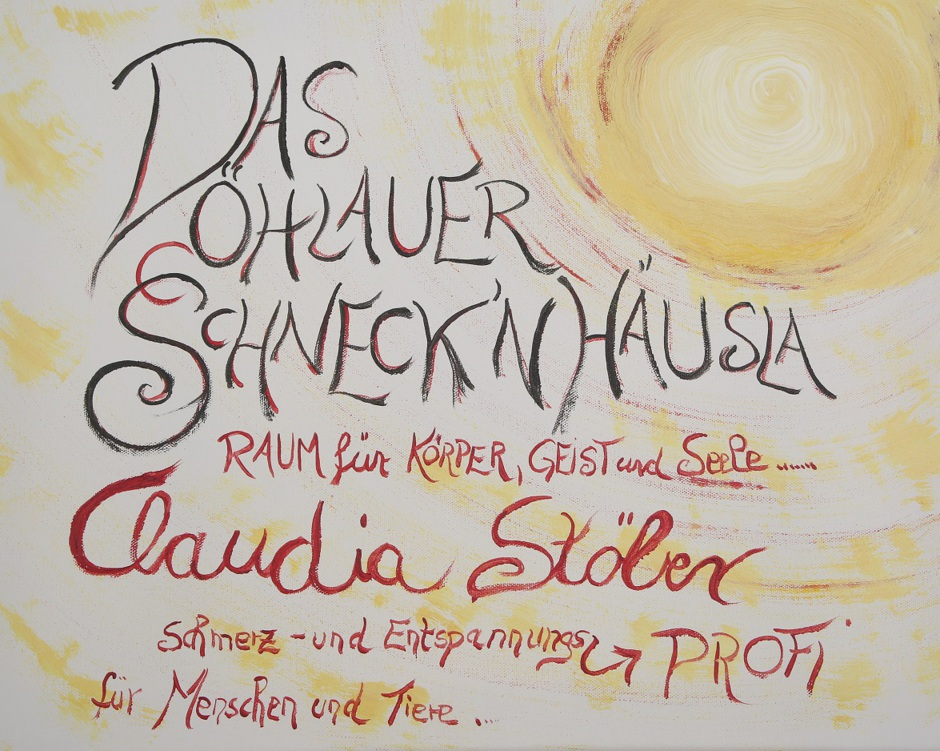 DAS
DÖHLAUER
SCHNECK'N HÄUSLA
RAUM für KÖRPER, GEIST und Seele ......
Claudia Stöber
Schmerz - und Entspannungs PROFi
für Menschen und Tiere ...